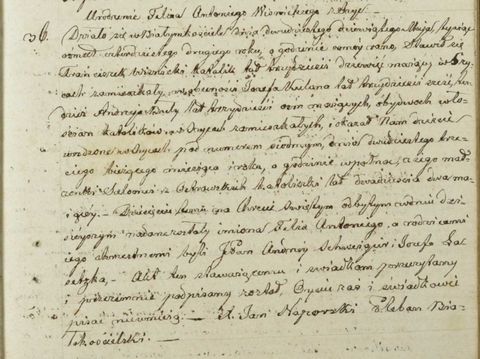 Urodzenie Felixa Antoniego Wiśnickiego z Onyc
36. Działo się w Białymkościele Dnia dwudziestego dziewiątego Maja tysiąc
osmset czterdziestego drugiego roku, o godzinie osmey rano. Stawił się
Franciszek Wiśnicki Katolik lat trzydzieści dziewięć mający w
zamieszkały, w obecności Józefa Kulana lat trzydzieści sześć, tu-
dzież Andrzeja lat trzydzieści osm mających, obydwóch wło-
ścian katolików w zamieszkałych, i okazał Nam dziecię
urodzone w pod numerem siódmym, dnia dwudziestego trze-
ciego bieżącego miesiąca i roku, o godzinie wpół do z jego mał-
żonki Salomei z Katoliczki lat dwadzieścia dwa ma-
jącey. – Dziecięciu temu na Chrzcie świętym odbytym w dniu dzi-
sieyszym nadane zostały imiona Felix Antoniego, a rodzicami
jego chrzestnemi byli JPan Andrzey i Józefa
Akt ten stawaiącemu i świadkom przeczytany
i przezemnie podpisany został Oyciec zaś i świadkowie
pisać nieumieią. — X. Jan Pleban Bia-
łkościelski. —